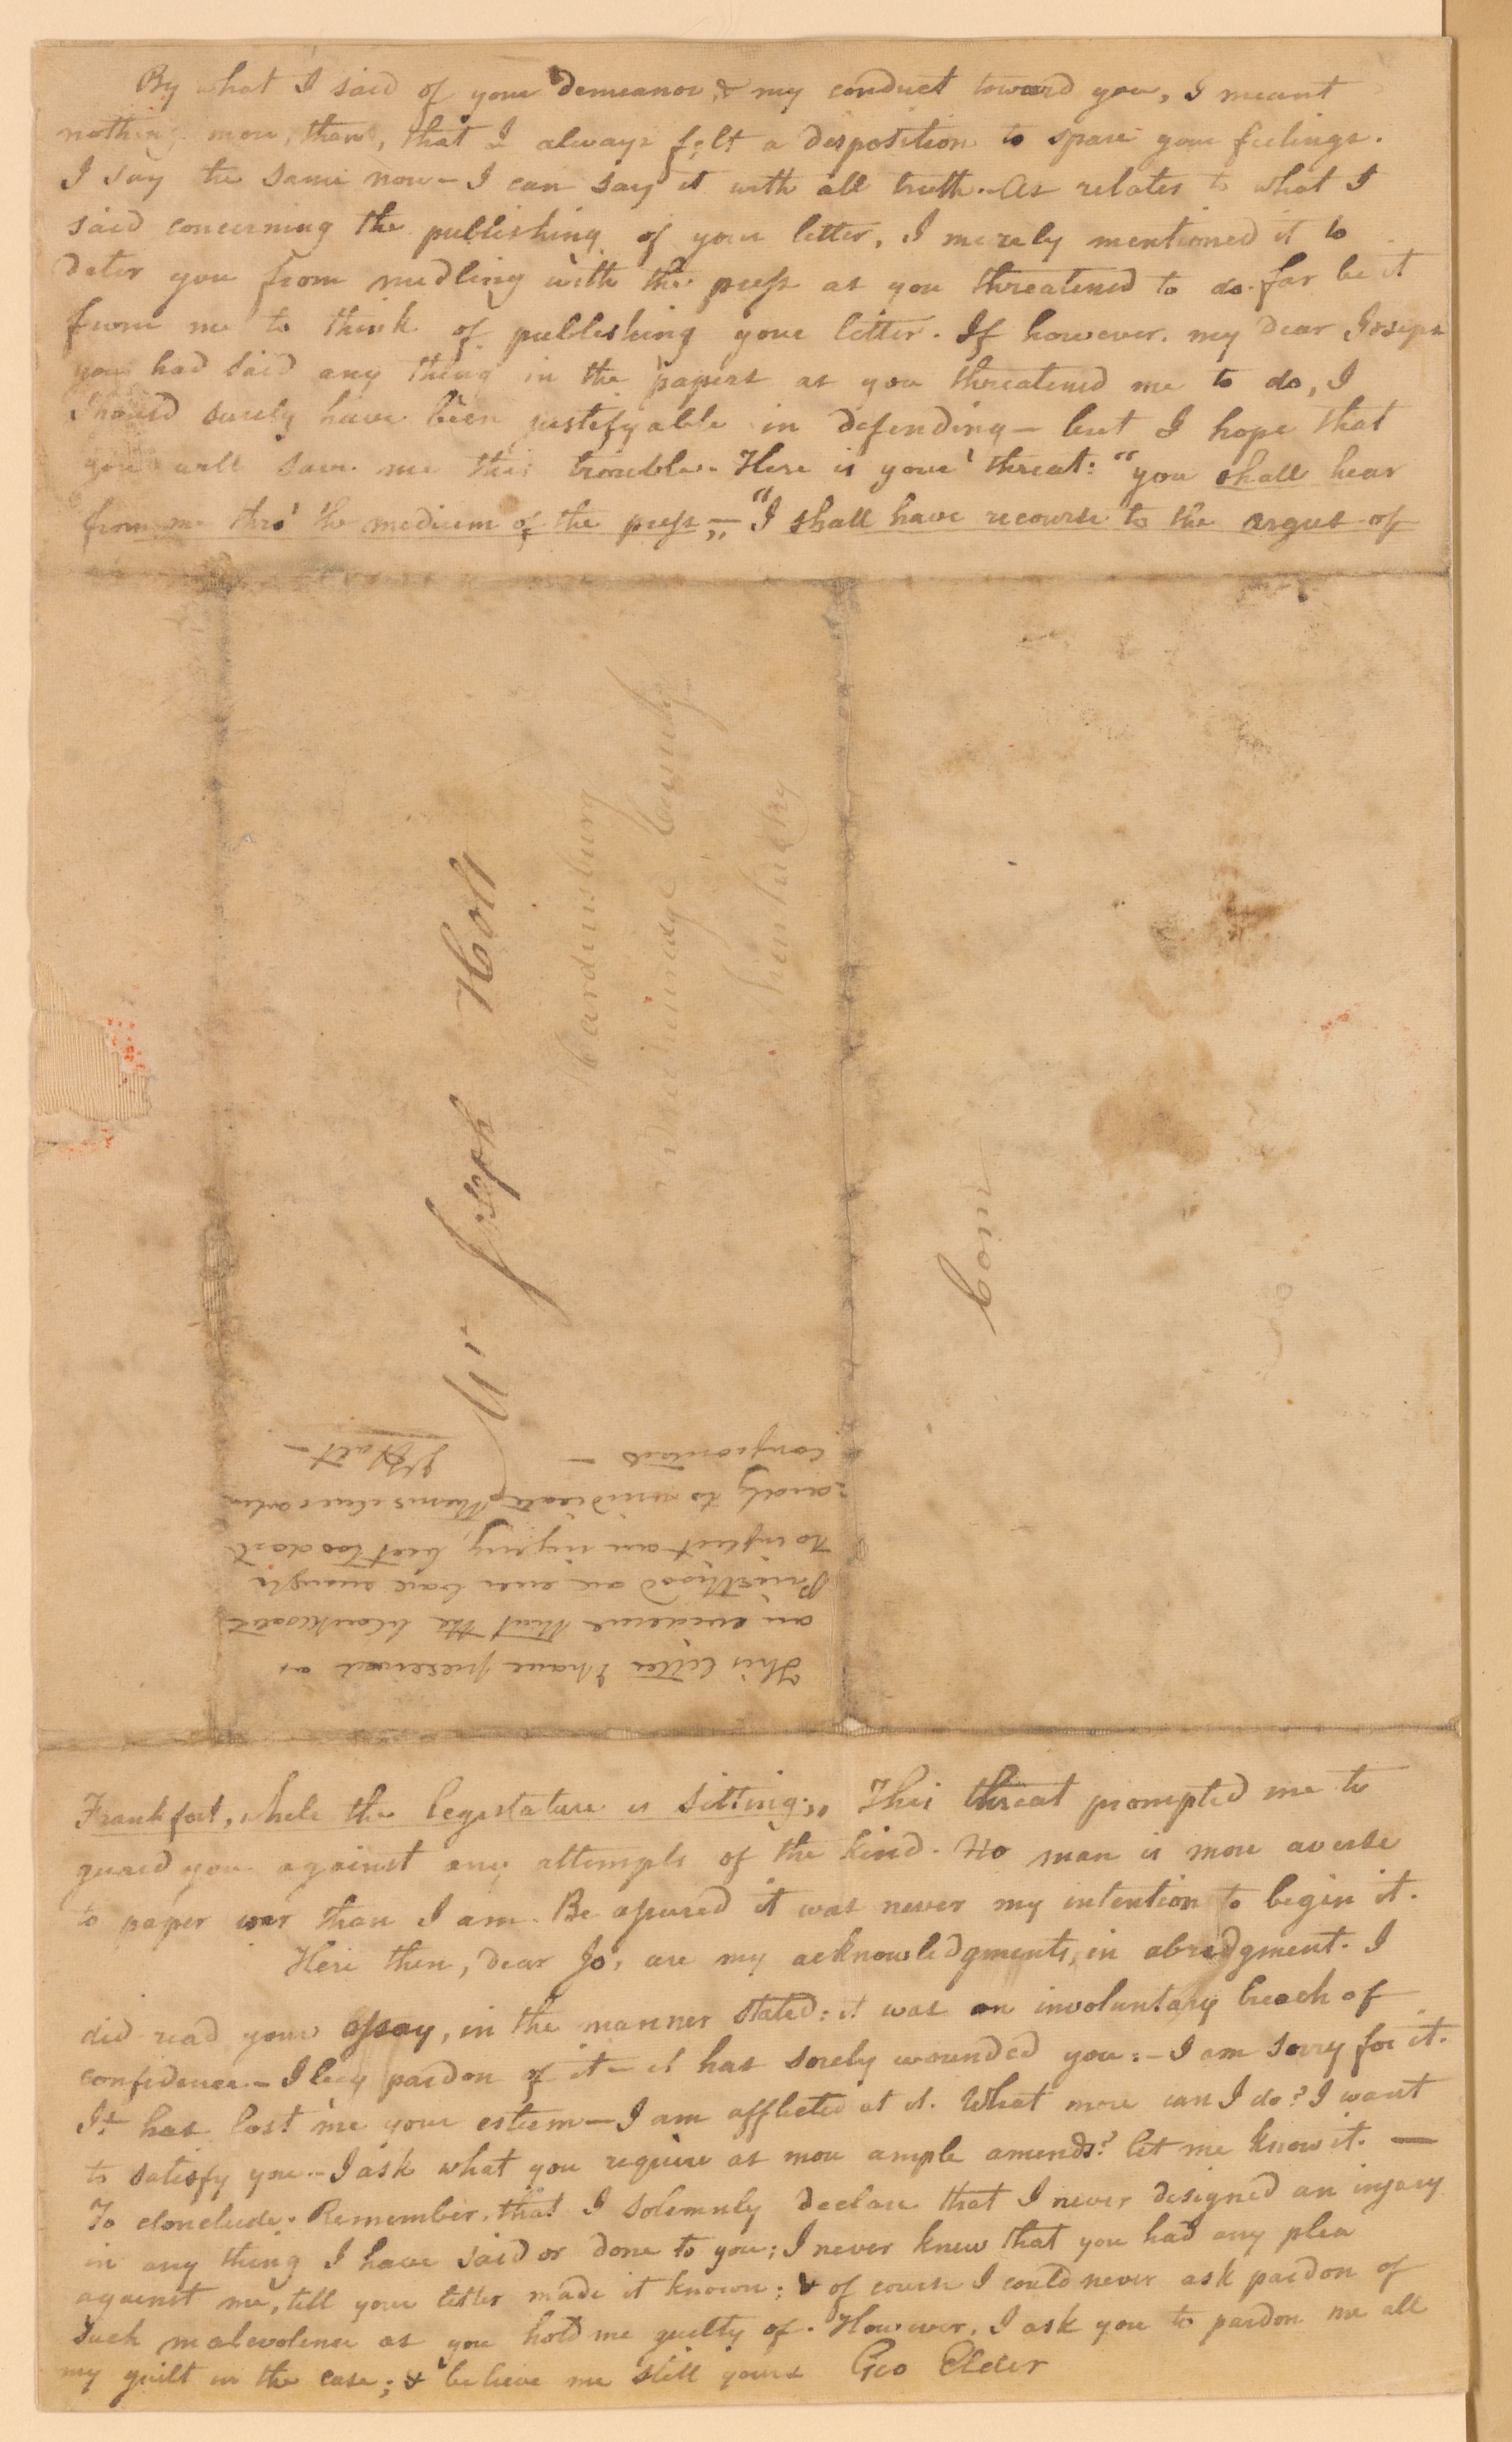 By what I said of your demeanor & my conduct toward you, I meant
nothing more, than, that I always felt a disposition to spare your feelings.
I say the same now – I can say it with all truth. – As relates to what I
said concerning the publishing of your letter, I merely mentioned it to
deter you from medling with the press as you threatened to do. far be it
from me to think of publishing your letter. If however, my dear Joseph
you had said any thing in the papers as you threatened me to do, I
should surely have been justifyable in defending – but I hope that
you will save me this trouble. Here is your threat: "you shall hear
from me thro' the medium of the press –" "I shall have recourse to the argus of
Mr Joseph Holt
Hardinsburg
Breckinridge County
Kentucky
This letter I have preserved as
an evidence that the blackcoated
Priesthood are ever base enough
to inflict an injury, but too das
=tardly to vindicate themselves when
confronted –
J Holt –
Frankfort, while the legistature is sitting." This threat prompted me to
guard you against any attempts of the kind. No man is more averse
to paper war than I am. Be assured it was never my intention to begin it.
Here then, dear Jo, are my acknowledgments, in abredgment. I
did read your essay, in the manner stated: it was an involuntary breach of
confidence – I beg pardon of it – it has sorely wounded you: – I am sorry for it.
It has lost me your esteem – I am afflicted at it. What more can I do? I want
to satisfy you. – I ask what you require as more ample amends? let me know it. —
To conclude. Remember, that I solemnly declare that I never designed an injury
in any thing I have said or done to you; I never knew that you had any plea
against me, till your letter made it known; & of course I could never ask pardon of
such malevolence as you hold me guilty of. However, I ask you to pardon me all
my guilt in the case; & believe me still yours Geo Elder